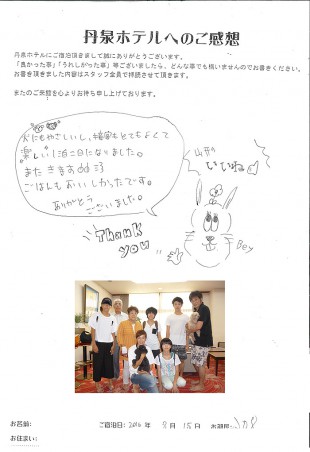 丹泉ホテルへのご感想
丹泉ホテルにご宿泊頂きまして誠にありがとうございます。
「良かった事」「うれしかった事」等ございましたら、どんな事でも構いませんのでお書きください。
お書き頂きました内容はスタッフ全員で拝読させて頂きます。
またのご来館を心よりお待ち申し上げております。
犬にもやさしいし、接客もとてもよくて
楽しい1泊2日になりました。
また きます
ごはんもおいしかったです。
ありがとう
ございました。
Thank
you
いいね
Bey
お名前:
ご宿泊日: 2016 年 8月 15日 お部屋:
お住まい: